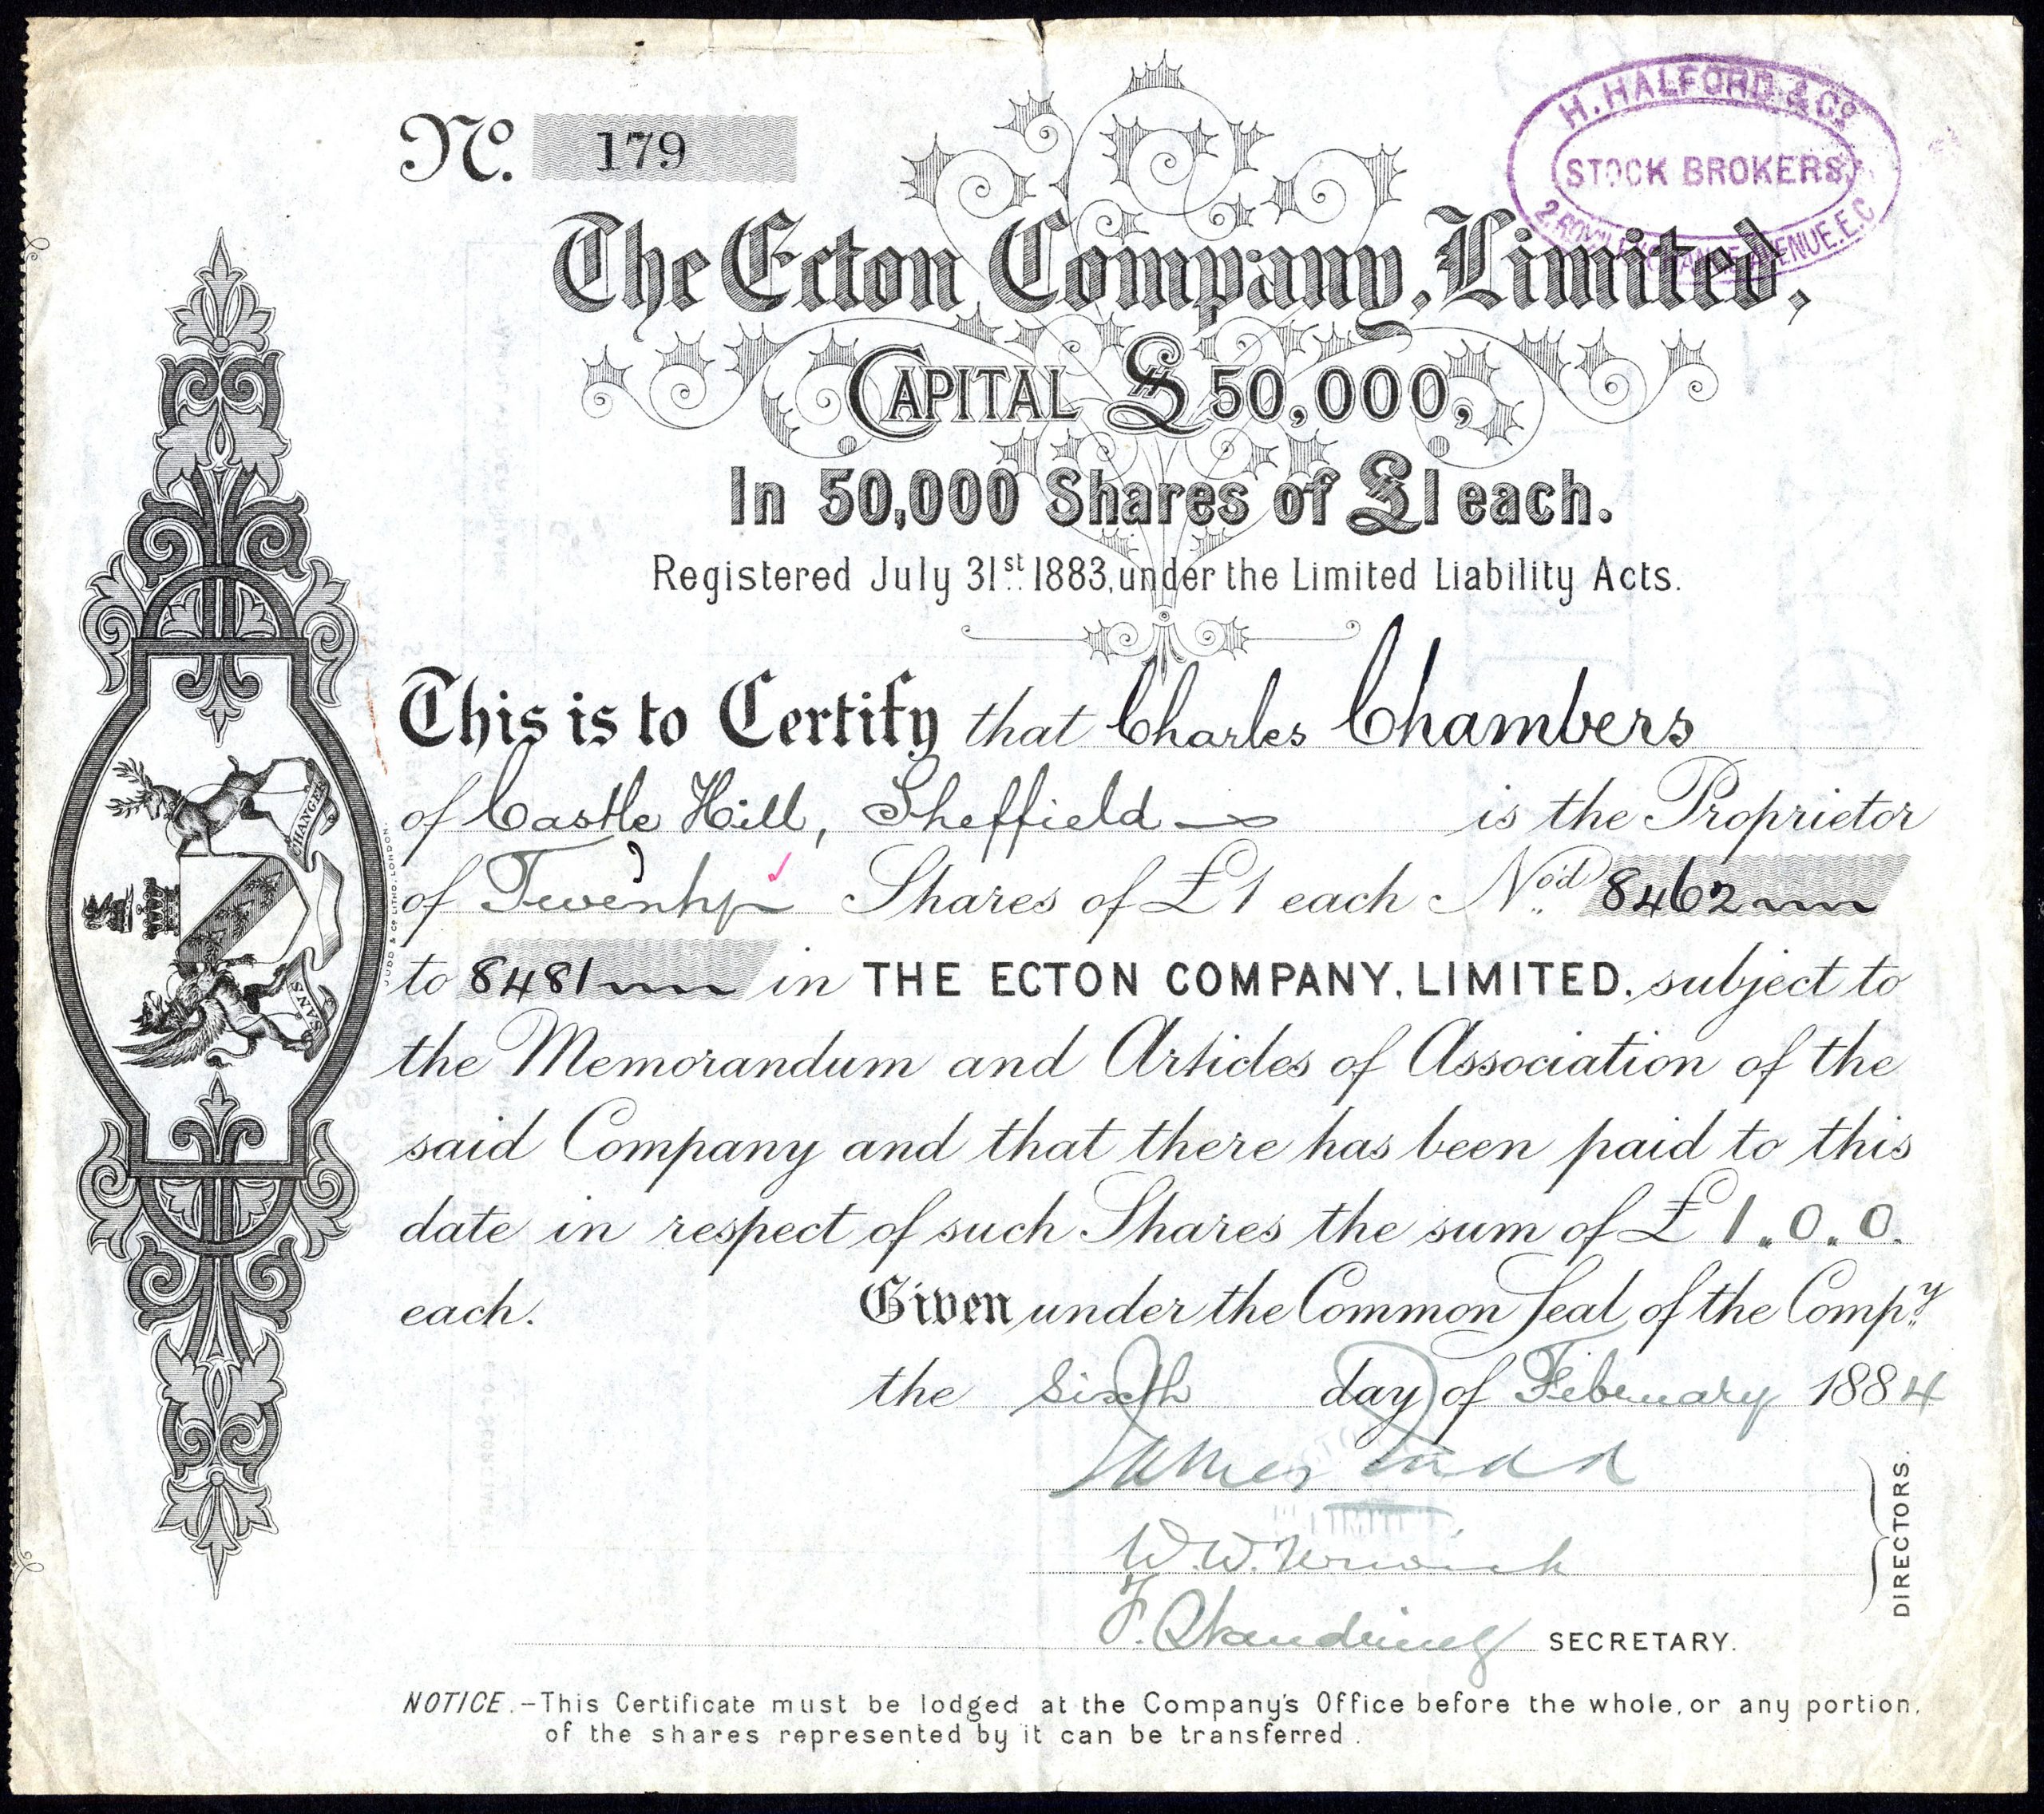 No. 179
H. HALFORD & Co
STOCK BROKERS,
2, ROYAL EXCHANGE AVENUE. E.C
The Ecton Company, Limited,
CAPITAL £50,000,
In 50,000 Shares of £1 each.
Registered July 31st 1883, under the Limited Liability Acts.
This is to Certify that Charles Chambers
of Castle Hill, Sheffield is the Proprietor
of Twenty Shares of £1 each Nod 8462
to 8481 in THE ECTON COMPANY, LIMITED, subject to
the Memorandum and Articles of Association of the
said Company and that there has been paid to this
date in respect of such Shares the sum of £1.0.0.
each. Given under the Common Seal of the Compy
the sixth day of February 1884
James
W.W.
F.
SECRETARY.
DIRECTORS.
NOTICE.–This Certificate must be lodged at the Company's Office before the whole, or any portion,
of the shares represented by it can be transferred.
SANS
CHANGER
JUDD & Co LITHO, LONDON.